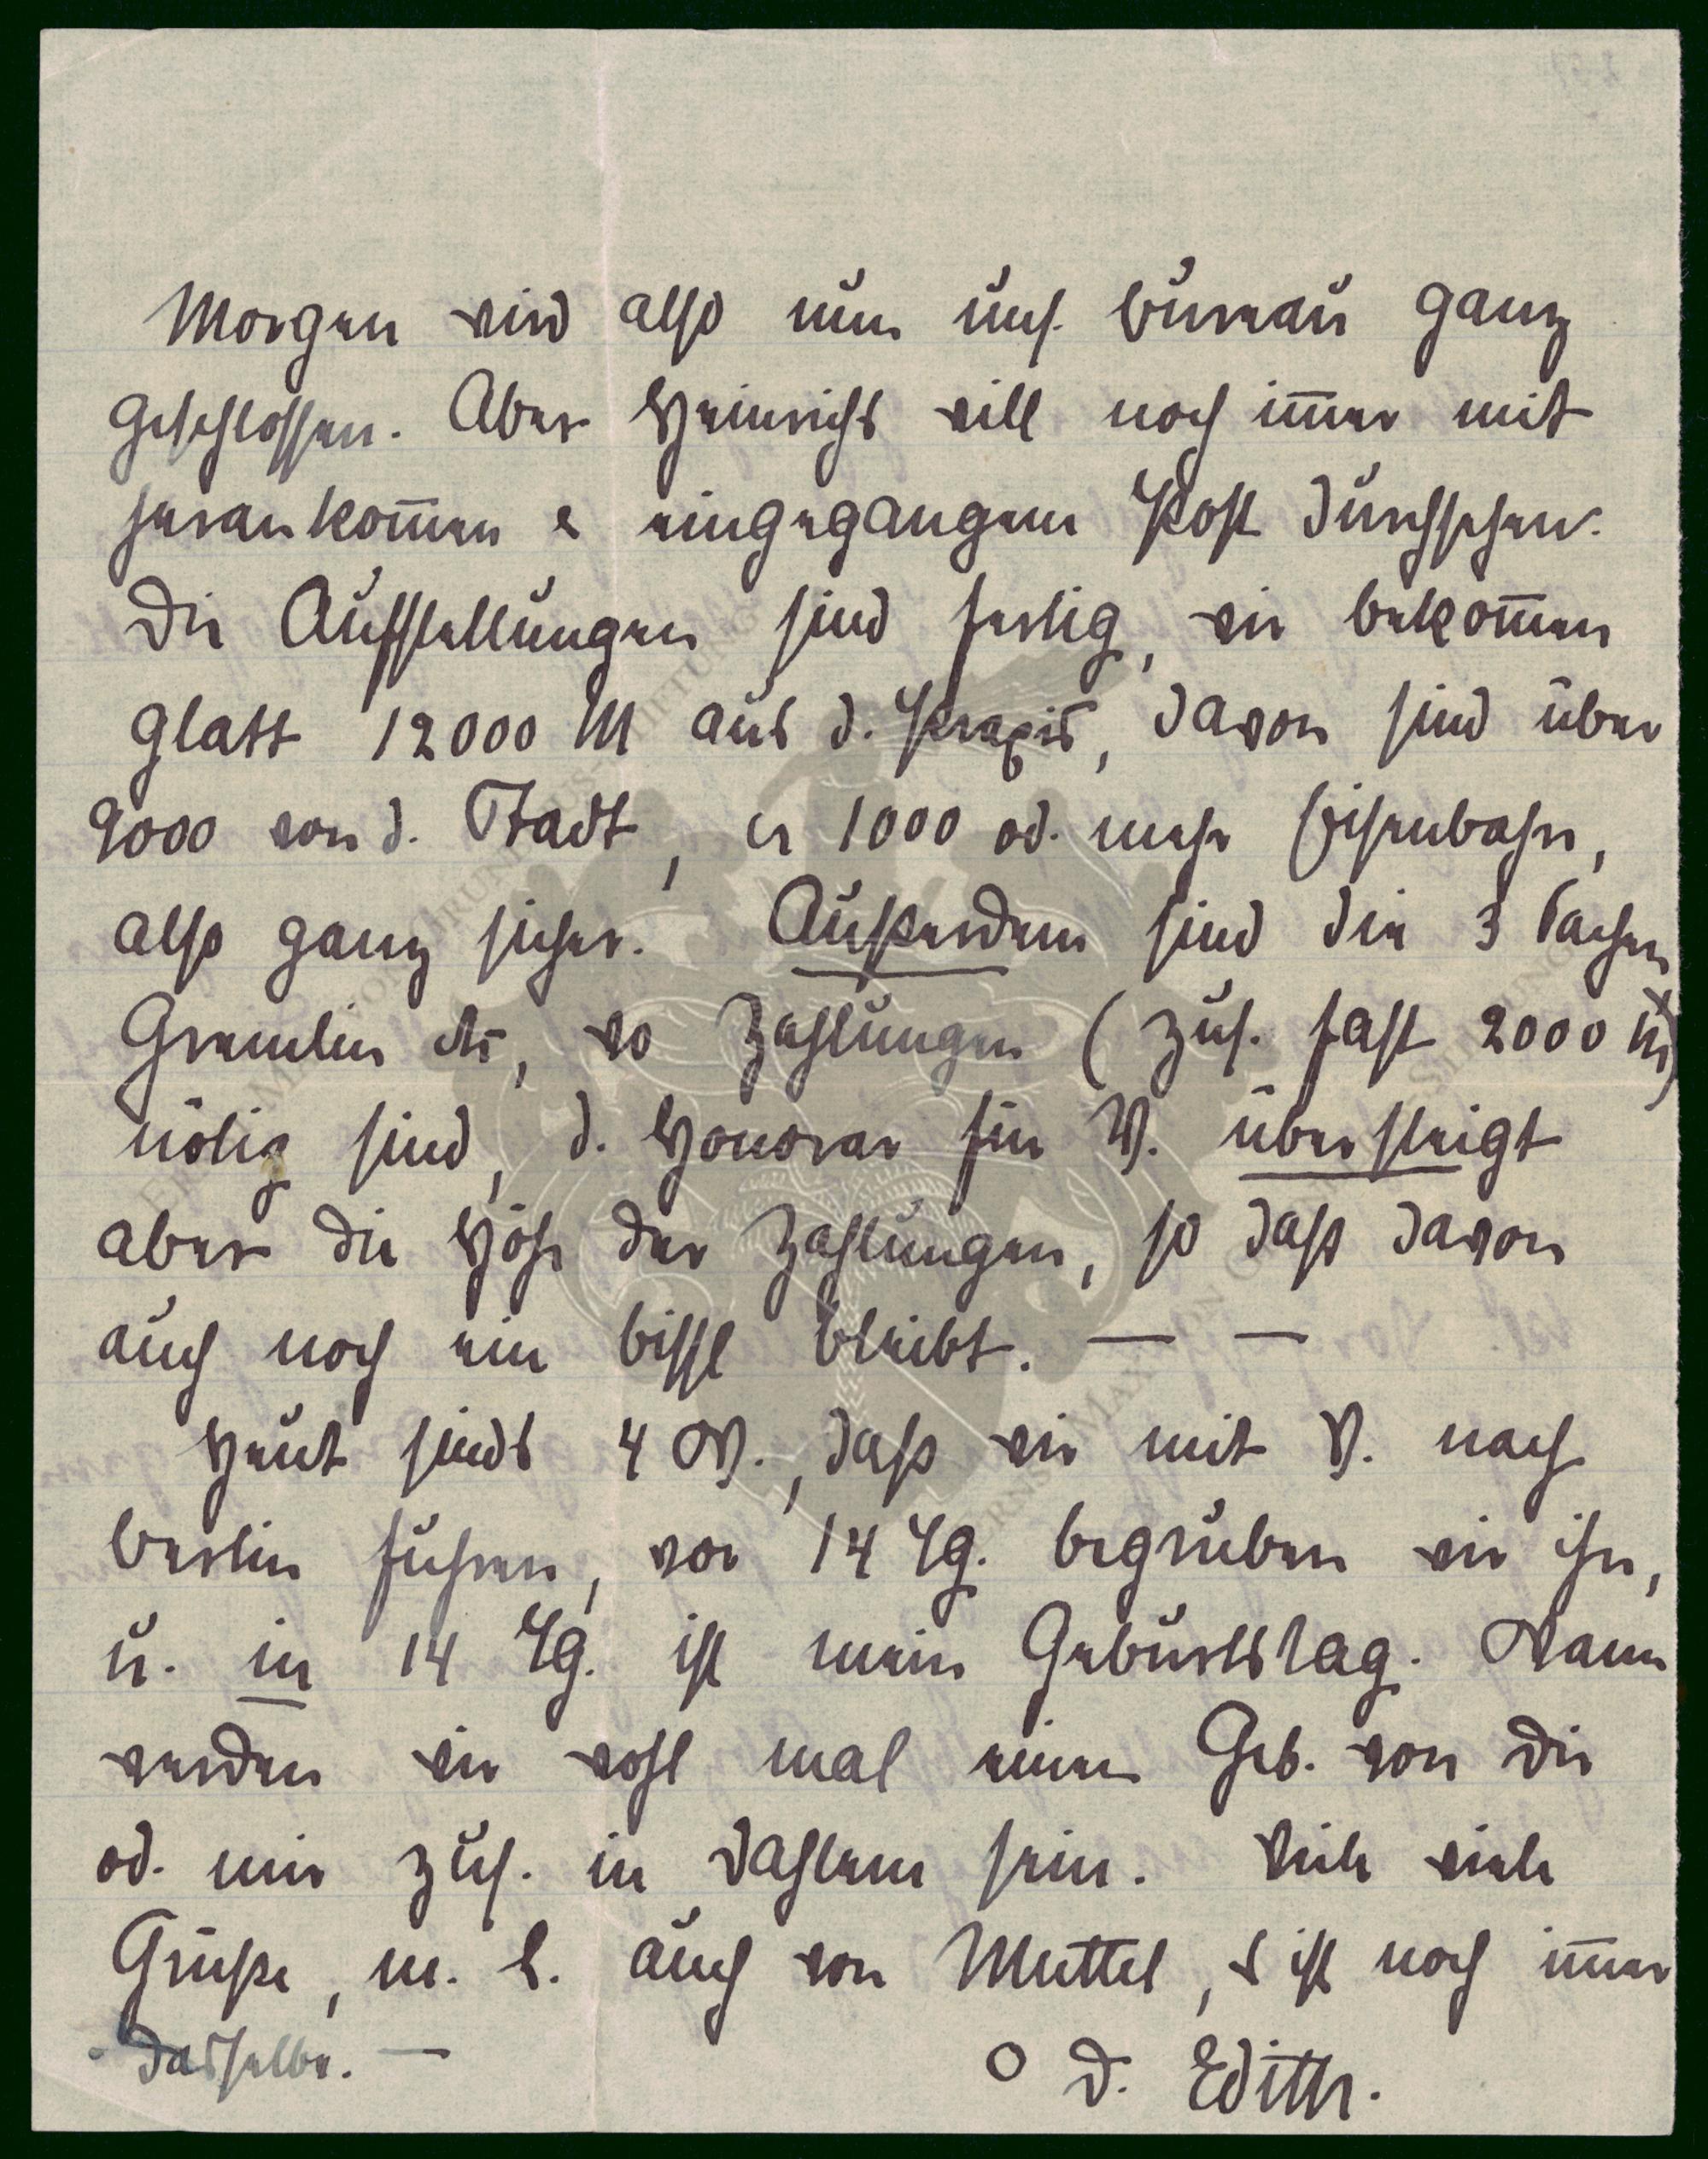 Morgen wird also nun uns. Bureau ganz
geschlossen. Aber Heinrichs will noch im̅er mit
heran kom̅en & eingegangene Post durchsehen.
Die Aufstellungen sind fertig, wir bekom̅en
glatt 12000 M aus d. Praxis, davon sind über
9000 von d. Stadt, ca 1000 od. mehr Eisenbahn,
also ganz sicher. Außerdem sind die 3 Sachen
etc, wo Zahlungen (zus. fast 2000 M)
nötig sind, d. Honorar für V. übersteigt
aber die Höhe der Zahlungen, so daß davon
auch noch ein bissl bleibt. — —
Heut sinds 4 W., daß wir mit V. nach
Berlin fuhren, vor 14 Tg. begruben wir ihn,
u. in 14 Tg. ist mein Geburtstag. Wann
werden wir wohl mal einen Geb. von Dir
od. mir zus. in Dahlem sein. Viele viele
Grüße, m. L. auch von Muttel, s ist noch im̅er
dasselbe. — O D. Edith.
ERNST MAX VON GRUNELIUS-STIFTUNG